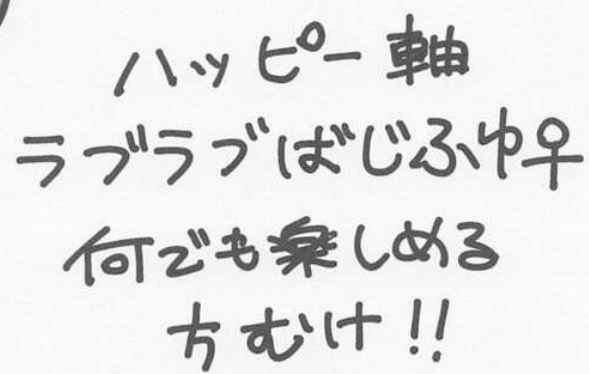 ハッピー軸
ラブラブばじふゆ♀
何でも楽しめる
方むけ!!